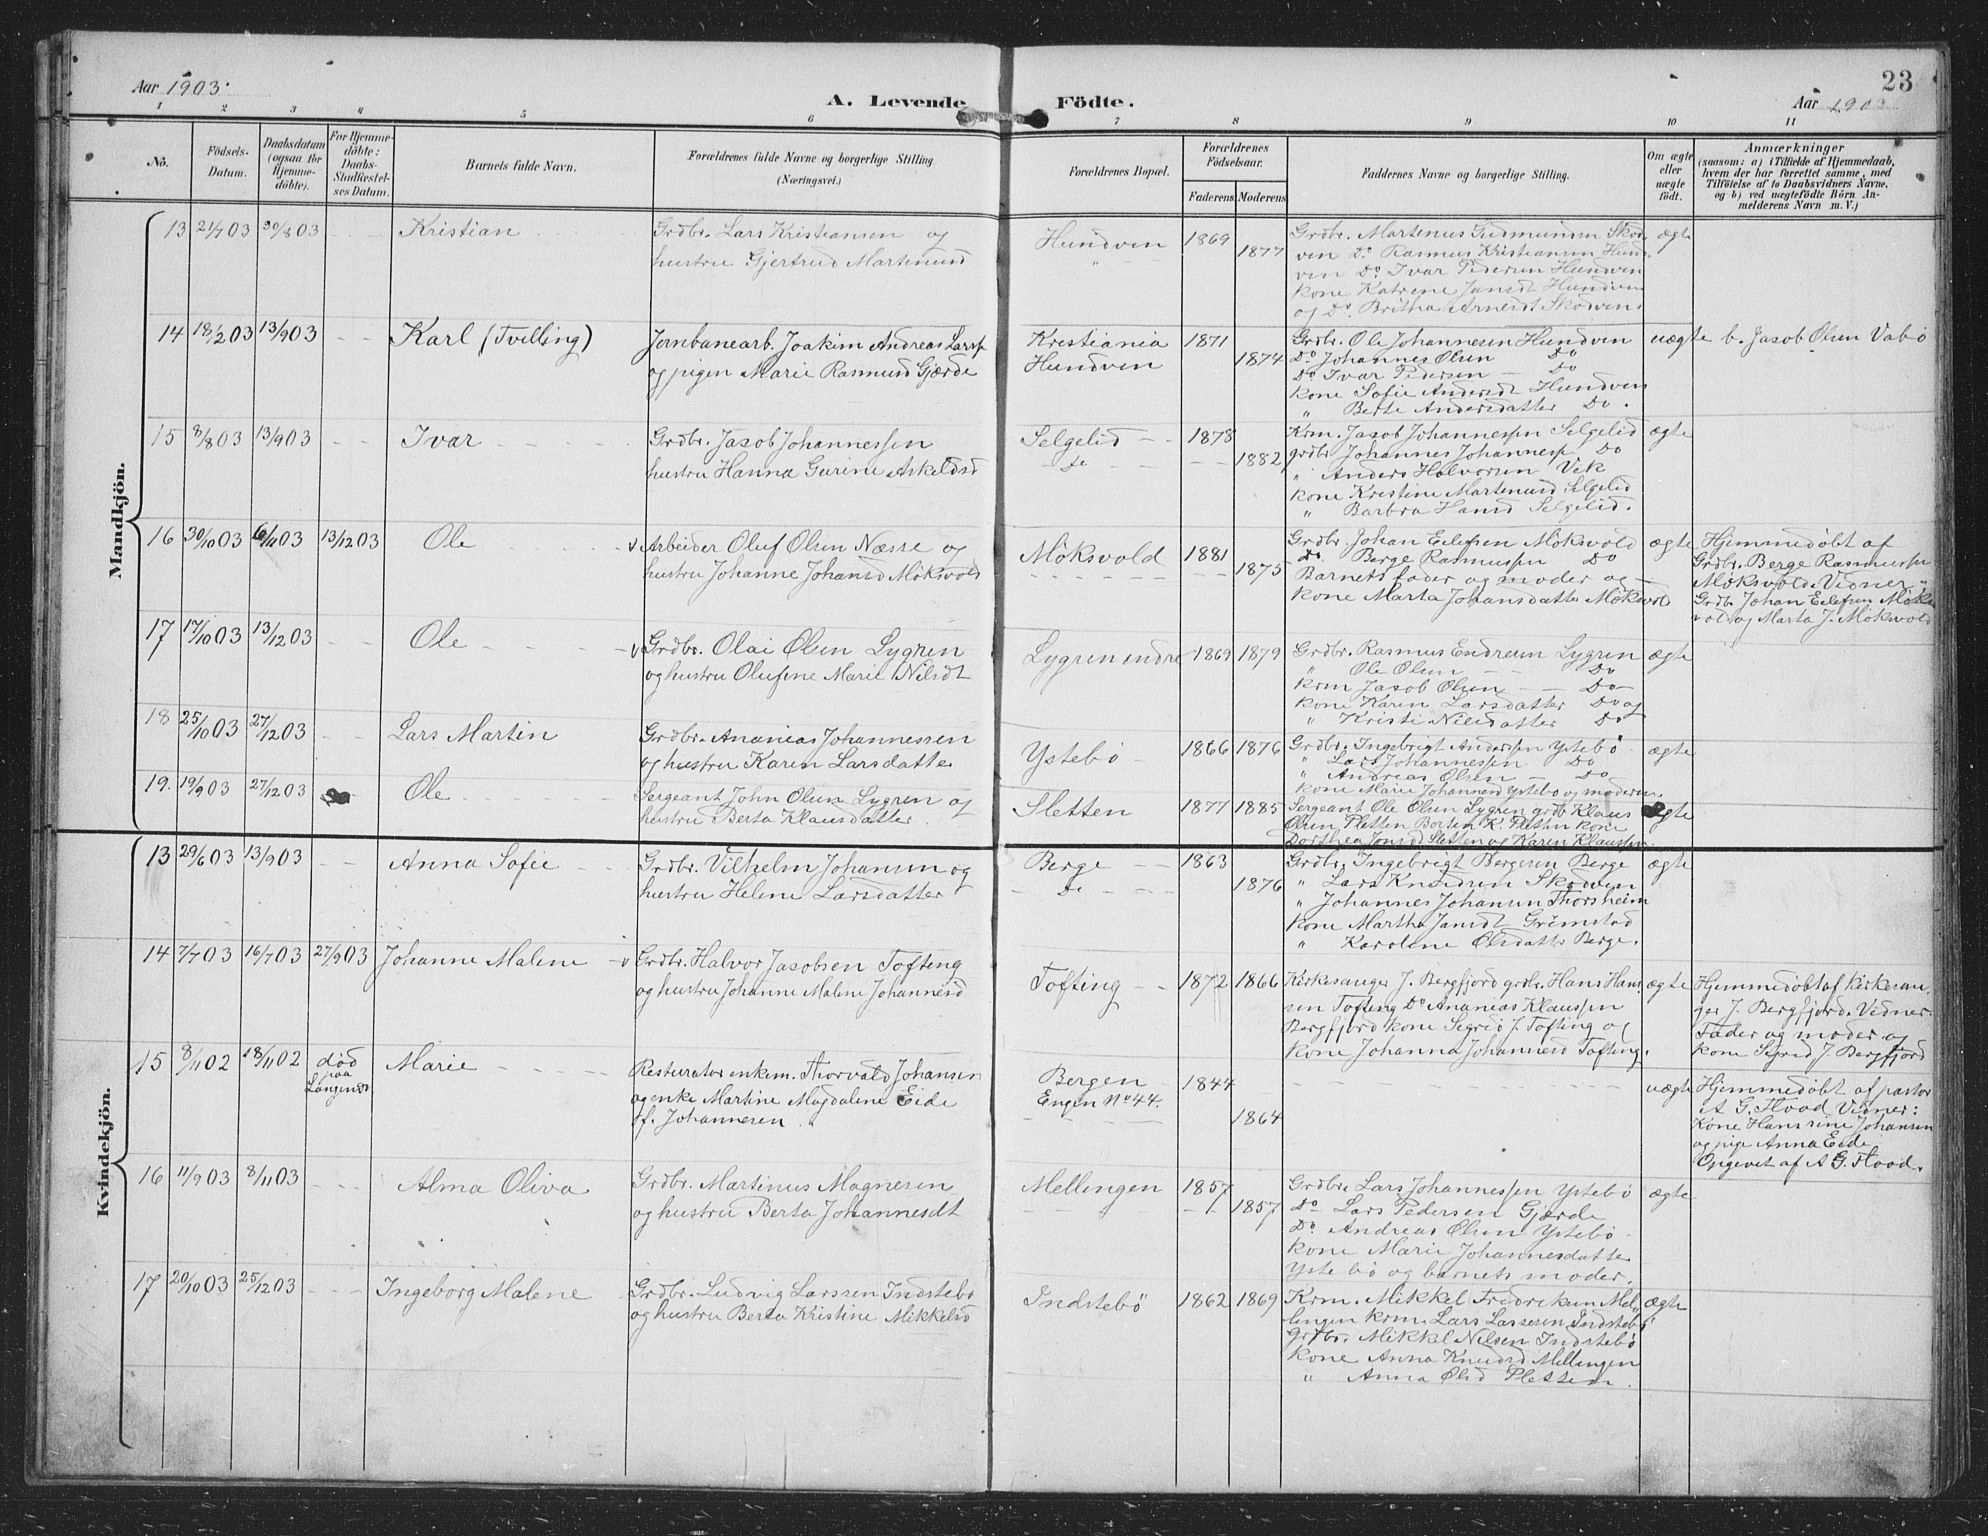 Aar 1903.
A. Levende Födte.
Aar 1903
23
1 2 3 4 5 6 7 8 9 10 11
No.
Födsels-
Datum.
Daabsdatum
(ogsaa for
Hjemme-
döbte).
For Hjemme-
döbte:
Daabs-
Stadfæstel-
ses Datum.
Barnets fulde Navn.
Forældrenes fulde Navne og borgerlige Stilling
(Næringsvei.)
Forældrenes Bopæl.
Forældrenes
Födselsaar.
Faderens Moderens
Faddernes Navne og borgerlige Stilling.
Om ægte
eller
uægte
födt.
Anmærkninger
(saasom: a) i Tilfælde af Hjemmedaab,
hvem der har forrettet samme, med
Tilföielse af to Daabsvidners Navne,
og b) ved uægtefödte Börn An-
melderens Navn m. V.)
Mandkjön.
13 21/7 03 30/8 03 Kristian
Grdbr. Lars Kristiansen og
hustru Gjertrud Martinusd
Hundven 1869
1877
Grdbr. Martenus Gudmundsen Skod-
ven Do. Rasmus Kristiansen Hund-
ven Do. Ivar Pedersen Hundven
kone Katrine Jansdt Hundven
og Do. Britha Arnesdt Skodven.
ægte
14 18/2 03 13/9 03 Karl (Tvilling)
Jernbanearb. Joakim Andreas Larsen
og pigen Marie Rasmusd Gjerde
Kristiania 1871
Hundven 1874
Grdbr. Ole Johannesen Hundven
Do Johannes Olsen Do
Do Ivar Pedersen - Do
kone Sofie Andersdt Hundven
" Berte Andersdatter Do.
uægte b. Jacob Olsen Vabø
15 8/8 03 13/9 03 Ivar
Grdbr. Jacob Johannessen
hustru Hanna Gurine Askeldsd
Selgelid 1878
do 1882
Krm. Jacob Johannessen Selgelid
grdbr Johannes Johanness. Do
" Anders Halvorsen Vik
kone Kristine Martinusd Selgelid
" Barbra Hansd Selgelid.
ægte
16 30/10 03 6/11 03 13/12 03 Ole
v Arbeider Oluf Olsen Næsse og
hustru Johanne Johansd Möksvold
Möksvold 1881
1875
Grdbr. Johan Eilefsen Möksvold
Do. Berge Rasmussen Do
Barnets fader og moder og -
kone Marta Johansdatter Möksvold
ægte
Hjemmedöbt af
Grdbr. Berge Rasmussen
Möksvold. Vidner "
Grdb. Johan Eilefsen Möks
vold og Marta J. Möksvold
17 17/10 03 13/12 03 Ole
v Grdbr. Olai Olsen Lygren
og hustru Olufine Marie Nilsdt
Lygren indre 1869 1879
Grdbr. Rasmus Endresen Lygren
" Ole Olsen - Do
krm Jacob Olsen - Do
kone Karen Larsdatter Do og
" Kristi Nilsdatter Do
ægte
18 25/10 03 27/12 03 Lars Martin
Grdbr. Ananias Johannessen
og hustru Karen Larsdatter
Ystebø 1866 1876
Grdbr. Ingebrigt Andersen Ystebø
" Lars Johannessen Do
" Andreas Olsen - Do
kone Marie Johannesd Ystebø og moderen.
ægte
19. 19/9 03 27/12 03 Ole
Sergeant John Olsen Lygren og
hustru Berta Klausdatter.
Sletten 1877 1885
Sergeant Ole Olsen Lygren grdb Klaus
Olsen Sletten Borten K. Sletten kone
Dorthea Jonsd Sletten og Karen Klaussen
ægte
Kvindekjön.
13 29/6 03 13/9 03 Anna Sofie
Grdbr. Vilhelm Johansen og
hustru Helene Larsdatter
Berge 1863
Do 1876
Grdbr. Ingebrigt Bergesen Berge
" Lars Knudsen Skodven
" Johannes Johansen Thorsheim
kone Martha Jansdt Grimstad
" Karoline Olsdatter Berge.
ægte
14 7/7 03 16/7 03 27/9 03 Johanne Malene
v Grdbr. Halvor Jacobsen Tofting
og hustru Johanne Malene Johannesd
Tofting 1872 1866
Kirkesanger J. Bergfjord grdbr. Hans Han-
sen Tofting Do Ananias Klaussen
Bergfjord kone Sigrid J. Tofting og
kone Johanna Johannesd Tofting.
ægte
Hjemmedöbt af kirkesan-
ger J. Bergfjord. Vidner
Fader og moder og
kone Sigrid J. Bergfjord
15 8/11 02 18/11 02 död
paa
Langenes
Marie
Resturatør enkem. Thorvald Johansen
og enke Martine Magdalene Eide
f. Johannesen.
Bergen 1844
Engen No 44. 1864
uægte
Hjemmedöbt af pastor
A G. Flood Vidner:
Kone Hanssine Johansen
og pige Anna Eide
Opgevet af A G. Flood.
16 11/9 03 8/11 03 Alma Oliva
Grdbr. Martinus Magnesen
og hustru Berta Johannesdt
Mellingen 1857
1857
Grdbr. Lars Johannessen Ystebø
Do Lars Pedersen Gjerde
Do. Andreas Olsen Ystebø
kone Marie Johannesdatter
Ystebø og barnets moder.
ægte
17 20/10 03 25/12 03 Ingeborg Malene
Grdbr. Ludvig Larssen Indstebø
og hustru Berta Kristine Mikkelsd
Indstebö 1862 1869
Krm. Mikkel Fredriksen Mel-
lingen krm. Lars Lassesen Indstebø
Grdbr. Mikkel Nilsen Indstebø
kone Anna Knudsd Mellingen
" Anna Olsd Sletten.
ægte